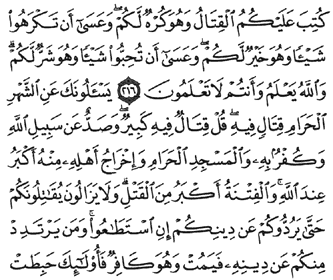 كُتِبَ عَلَيْكُمُ ٱلْقِتَالُ وَهُوَ كُرْهٌ لَّكُمْ ۖ وَعَسَىٰٓ أَن تَكْرَهُوا۟
شَيْـًٔا وَهُوَ خَيْرٌ لَّكُمْ ۖ وَعَسَىٰٓ أَن تُحِبُّوا۟ شَيْـًٔا وَهُوَ شَرٌّ لَّكُمْ ۗ
وَٱللَّهُ يَعْلَمُ وَأَنتُمْ لَا تَعْلَمُونَ ٢١٦ يَسْـَٔلُونَكَ عَنِ ٱلشَّهْرِ
ٱلْحَرَامِ قِتَالٍ فِيهِ ۖ قُلْ قِتَالٌ فِيهِ كَبِيرٌ ۖ وَصَدٌّ عَن سَبِيلِ ٱللَّهِ
وَكُفْرٌۢ بِهِۦ وَٱلْمَسْجِدِ ٱلْحَرَامِ وَإِخْرَاجُ أَهْلِهِۦ مِنْهُ أَكْبَرُ
عِندَ ٱللَّهِ ۚ وَٱلْفِتْنَةُ أَكْبَرُ مِنَ ٱلْقَتْلِ ۗ وَلَا يَزَالُونَ يُقَـٰتِلُونَكُمْ
حَتَّىٰ يَرُدُّوكُمْ عَن دِينِكُمْ إِنِ ٱسْتَطَـٰعُوا۟ ۚ وَمَن يَرْتَدِدْ
مِنكُمْ عَن دِينِهِۦ فَيَمُتْ وَهُوَ كَافِرٌ فَأُو۟لَـٰٓئِكَ حَبِطَتْ